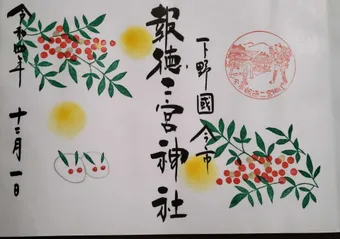 下野國 今市
報徳二宮神社
令和四年
十二月一日